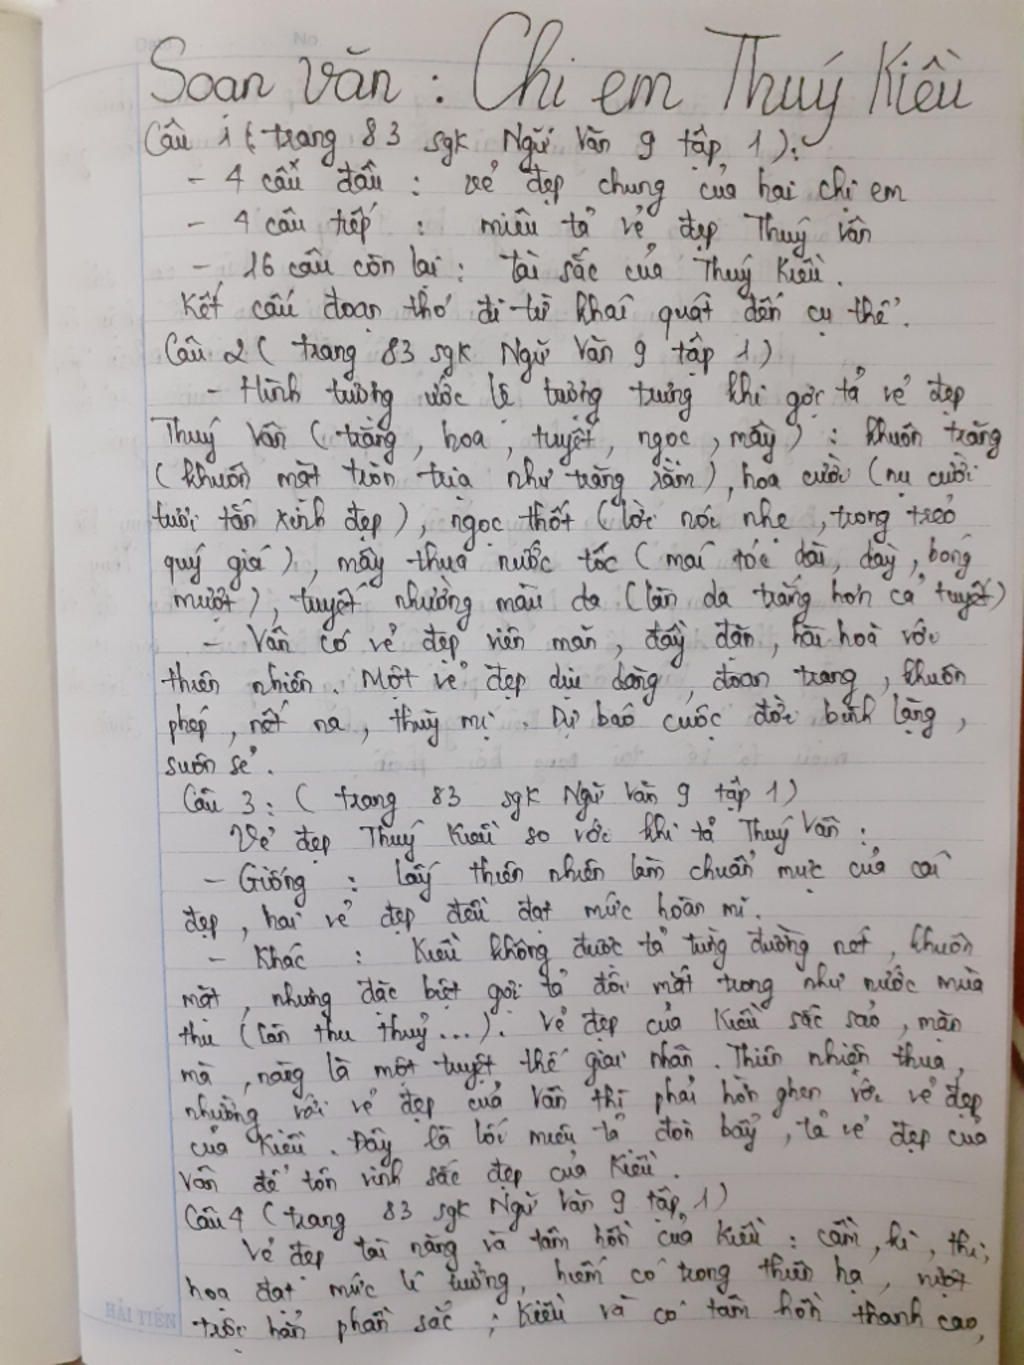 Soạn văn : Chị em Thuý Kiều
Câu 1 ( trang 83 sgk Ngữ Văn 9 tập 1 ):
- 4 câu đầu : vẻ đẹp chung của hai chị em
- 4 câu tiếp : miêu tả vẻ đẹp Thuý Vân
- 16 câu còn lại : tài sắc của Thuý Kiều.
Kết cấu đoạn thơ đi từ khái quát đến cụ thể.
Câu 2 ( trang 83 sgk Ngữ Văn 9 tập 1 )
- Hình tượng ước lệ tượng trưng khi gợi tả vẻ đẹp
Thuý Vân ( trăng , hoa , tuyết , ngọc , mây ) : khuôn trăng
( khuôn mặt tròn trịa như trăng rằm ) , hoa cười ( nụ cười
tươi tắn xinh đẹp ) , ngọc thốt ( lời nói nhẹ , trong trẻo
quý giá ) , mây thua nước tóc ( mái tóc dài, dày , bóng
mượt ) , tuyết nhường màu da ( làn da trắng hơn cả tuyết )
- Vân có vẻ đẹp viên mãn , đầy đặn , hài hoà với
thiên nhiên . Một vẻ đẹp dịu dàng , đoan trang , khuôn
phép , nết na , thuỳ mị . Dự báo cuộc đời bình lặng ,
suôn sẻ .
Câu 3 : ( trang 83 sgk Ngữ Văn 9 tập 1 )
Vẻ đẹp Thuý Kiều so với khi tả Thuý Vân :
- Giống : lấy thiên nhiên làm chuẩn mực của cái
đẹp , hai vẻ đẹp đều đạt mức hoàn mĩ .
- Khác : Kiều không được tả từng đường nét , khuôn
mặt , nhưng đặc biệt gợi tả đôi mắt trong như nước mùa
thu ( làn thu thuỷ ... ) . Vẻ đẹp của Kiều sắc sảo , mặn
mà , nàng là một tuyệt thế giai nhân . Thiên nhiên thua ,
nhường với vẻ đẹp của Vân thì phải hờn ghen với vẻ đẹp
của Kiều . Đây là lối miêu tả đòn bẩy , tả vẻ đẹp của
Vân để tôn vinh sắc đẹp của Kiều .
Câu 4 ( trang 83 sgk Ngữ Văn 9 tập 1 )
Vẻ đẹp tài năng và tâm hồn của Kiều : cầm , kì , thi,
hoạ đạt mức lí tưởng , hiếm có trong thiên hạ , vượt
trội hẳn phần sắc ; Kiều và có tâm hồn thanh cao,
HẢI TIẾN